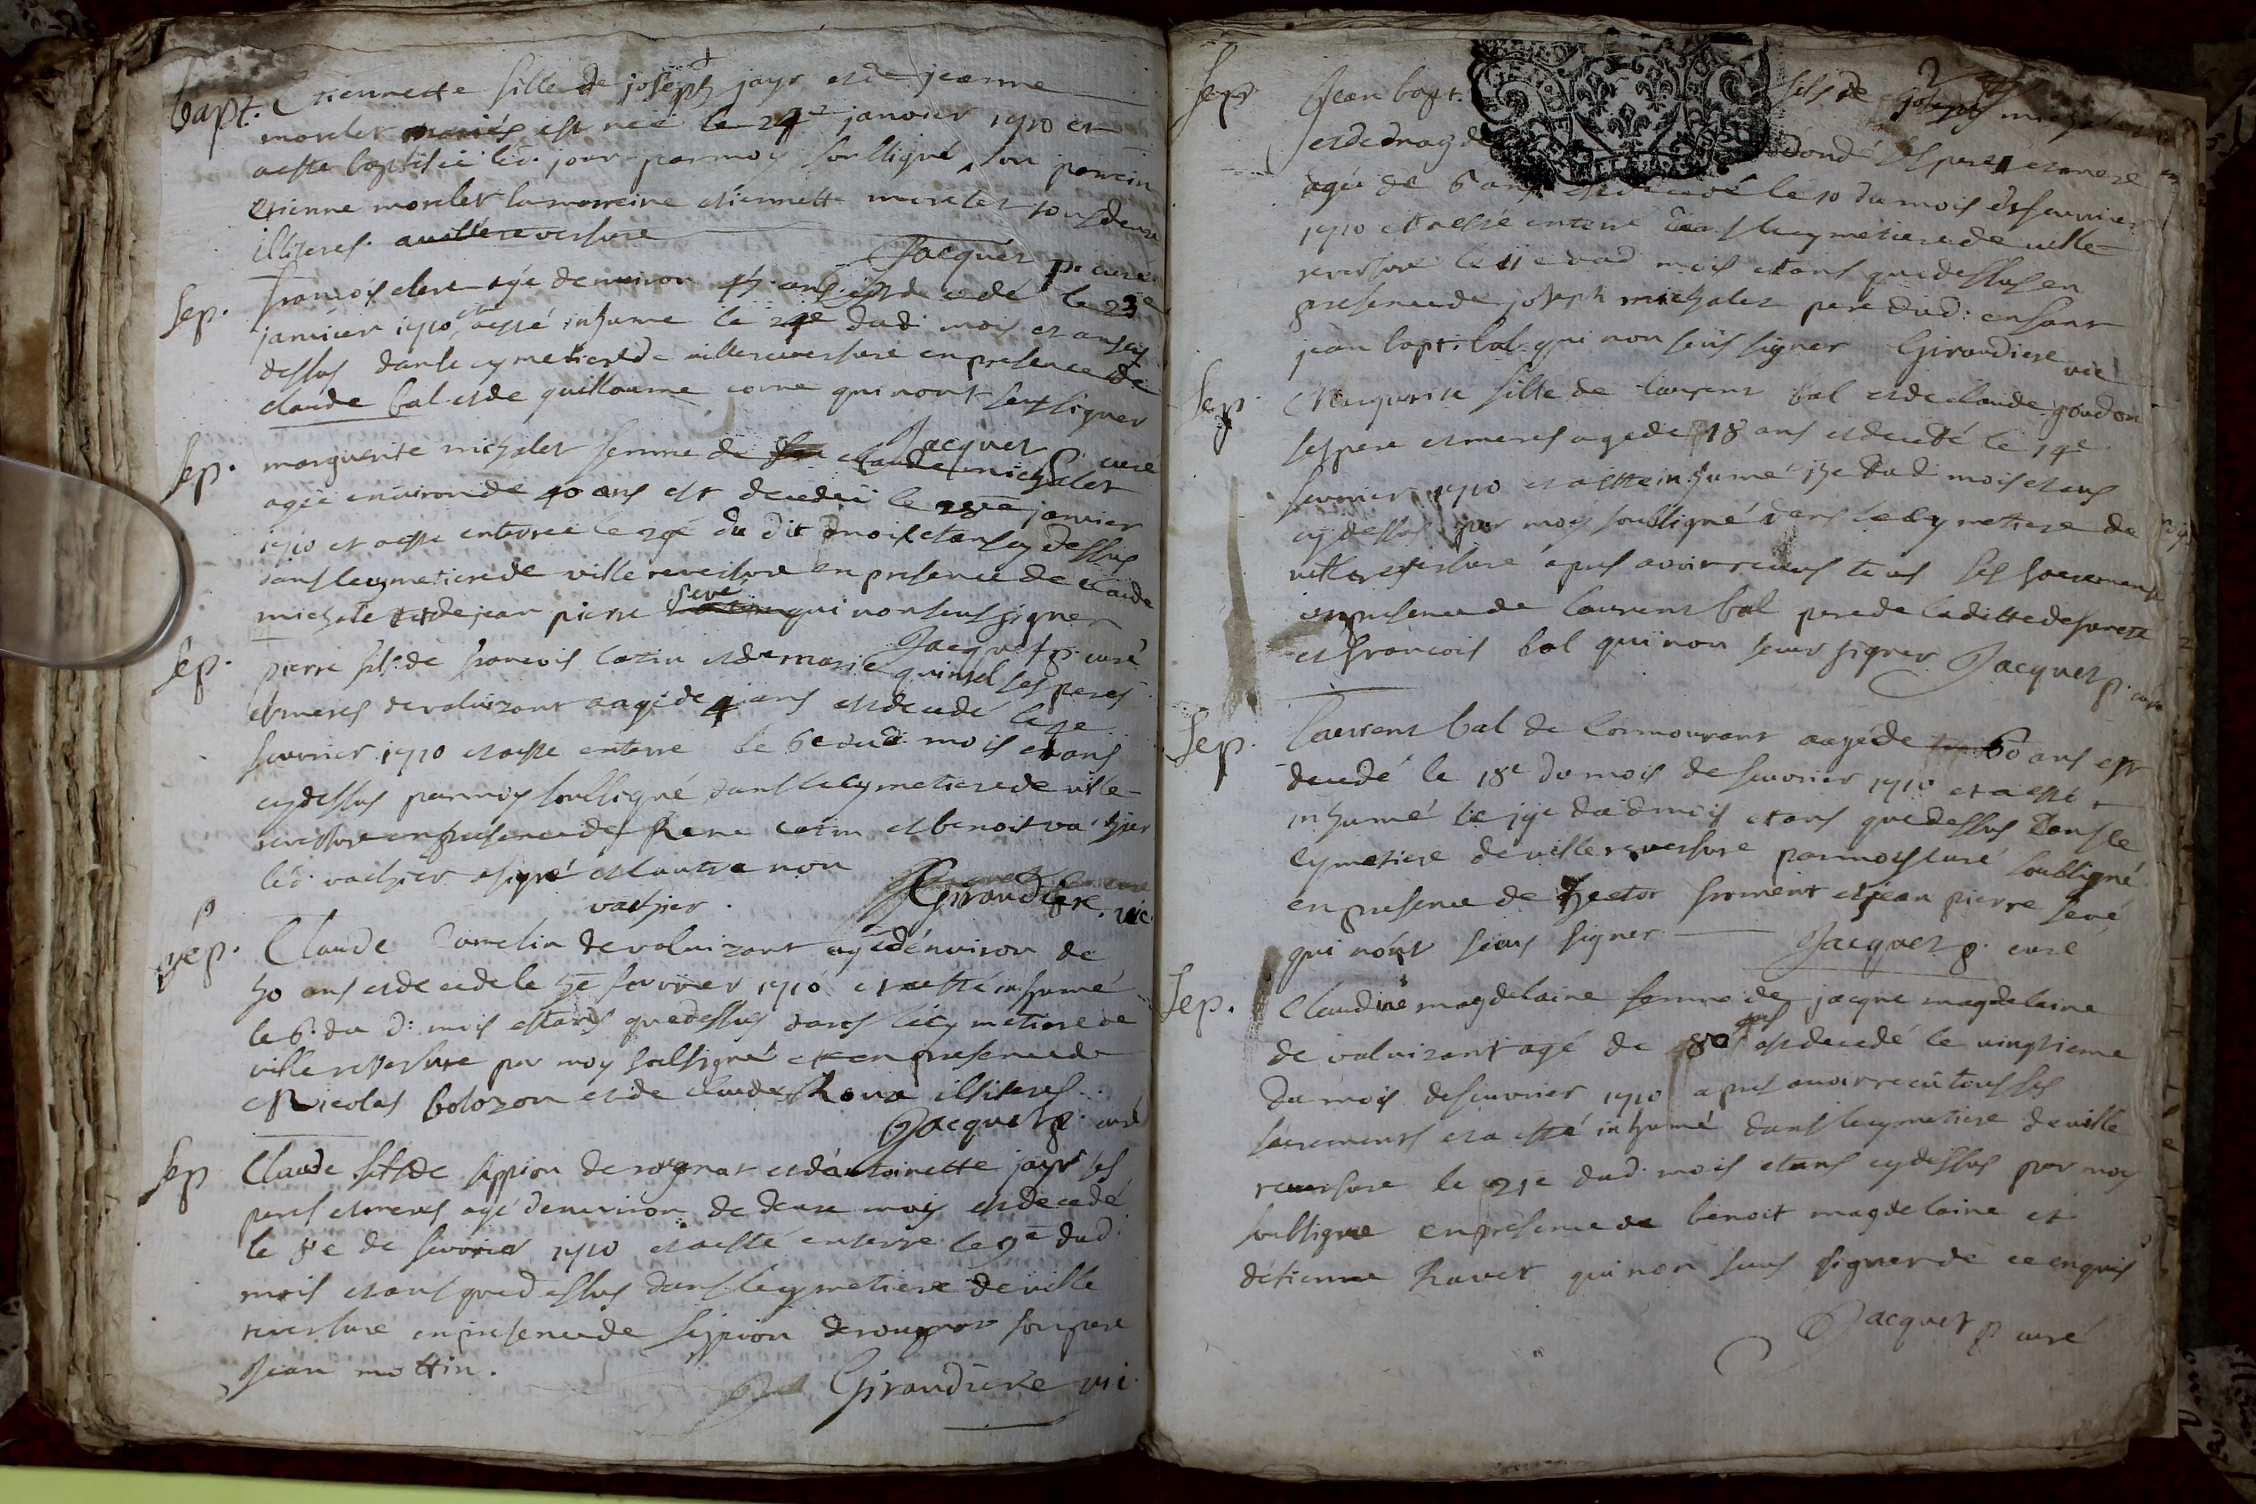 bapt. Etiennette fille de joseph jayr et de jeanne
morelet mariés est née le 24e janvier 1710 et
a esté baptisée led. jour par moy soubsigné son parrein
etienne morelet la marreine etiennette morelet tous deux
illiteres. a villereversure
Jacquet p. curé
sep. françois clert agé denviron ans est decedé le 23e
janvier 1710 et a esté inhume le 24e dud. mois et an cy
dessus dans le cymetiere de villereversure en presence de
claude bal et de guillaume corne qui n'ont seu signer
Jacquet p. curé
sep. marguerite michalet femme de claude michalet
agée environ de 40 ans est decedée le janvier
1710 et a esté enterree le du dit mois et an cy dessus
dans le cymetiere de ville reversure en presence de claude
michalet et de jean pierre sevé qui non seu signer
Jacquet p. curé
sep. pierre fils de françois cotin et de marie quinsel ses peres
et meres de valuizant aagé de 4 ans est decedé le 5e
feuvrier 1710 et a esté enterré le 6e dud. mois et ans
cy dessus par moy soubsigné dans le cymetiere de ville
reversure en presence de Rene cotin et benoit vachier
led. vachier a signé et l'autre non
vachier. Girandiere, vic.
sep. Claude de valuizant agé d'environ de
50 ans est decedé le 5e feuvrier 1710 et a esté inhumé
le 6. du d. mois et ans que dessus dans le cymetiere de
ville reversure par moy soubsigné et en presence de
Nicolas bolozon et de claude Roux illiteres.
Jacquet p. curé
sep Claude fils de sippion de rognat et d'antoinette jayr ses
peres et meres agé d'environ de deux mois est decedé
le 8e de feuvrier 1710 et a esté enterré le 9e dud.
mois et ans que dessus dans le cymetiere de ville
reversure en presence de sippion de rougnat son pere
Jean mottin.
Girandiere vic.
sep Jean bapt. fils de joseph michalet
et de dondé ses peres et mere
agée de 6 ans est decedé le 10 du mois de feuvrier
1710 et a esté enterré dans le cymetiere de ville
reversure le 11e dud mois et ans que dessus en
presence de joseph michalet pere dud: enfant
jean bapt. bal qui non seus signer Girandiere vic
sep. Marguerite fille de laurent bal et de claude goudon
ses pere et meres agé de 18 ans est decedé le 14e
feuvrier 1710 et a esté inhumé 15e du d mois et ans
cy dessus par moy soubsigné dans le cymetiere de
villereversure apres avoir receus tous ses sacrements
en presence de laurent bal pere de la ditte defunte
et françois bal qui non seus signer Jacquet p. curé
Sep. Laurent bal de Cormourant aagé de 60 ans est
decedé le 18e du mois de feuvrier 1710 et a esté
inhumé le 19e du d mois et ans que dessus dans le
cymetiere de ville reversure par moy curé soubsigné
en presence de hector froment et jean pierre sevé
qui n'ont seus signer Jacquet p. curé
Sep. Claudine magdelaine femme de jacque magdelaine
de valuizant agé de 80 ans est decedé le vingtieme
du mois de feuvrier 1710 apres avoir receu tous ses
sacrements et a esté inhumé dans le cymetiere de ville
reversure le 21e dud. mois et ans cy dessus par moy
soubsigne en presence de benoit magdelaine et
d'etienne Ravet qui non seus signer de ce enquis
Jacquet p curé